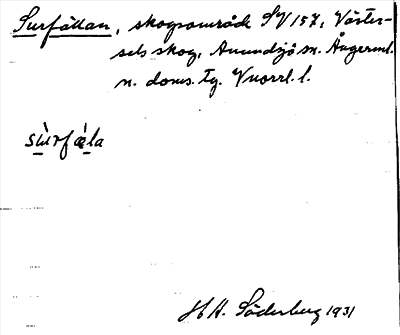 Surfällan, skogsområde SV 157, Väster-
sels skog, Anundsjö sn. Ångerml.
n. doms. tg. Vnorrl. l.
sùrfæ̀la
H H. Söderberg 1931